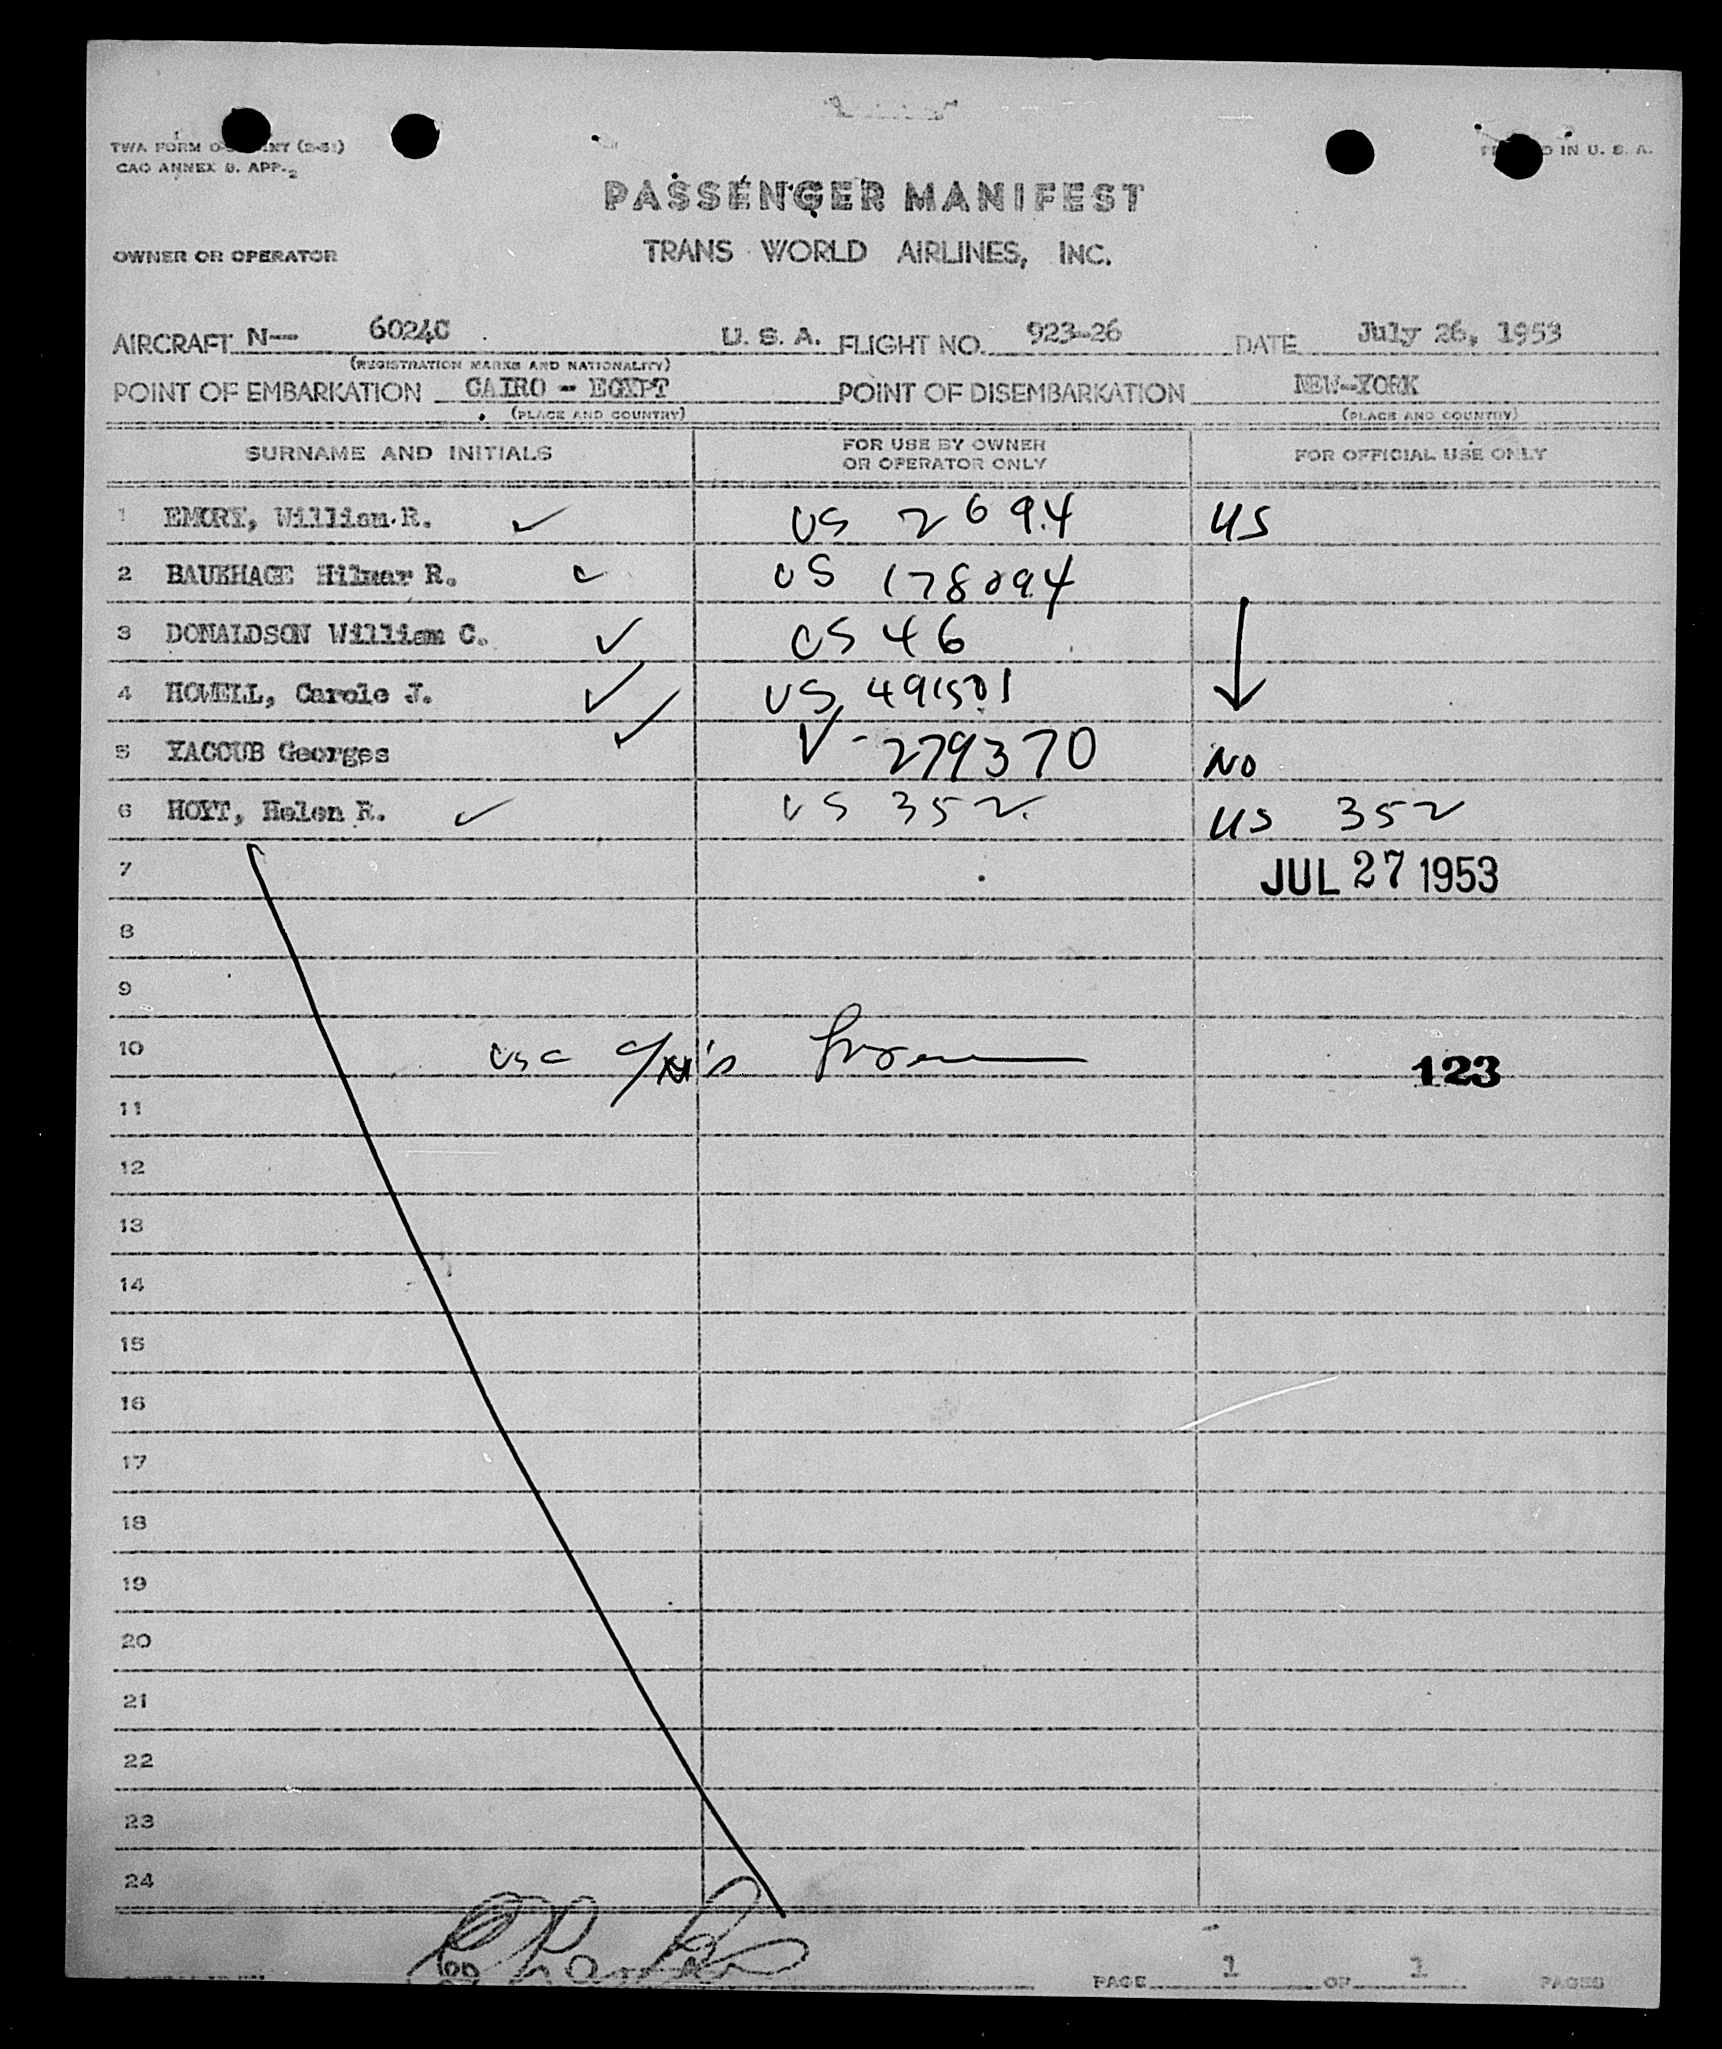 TWA FORM
CAO ANNEX 9. APP.2
IN U. S. A.
PASSENGER MANIFEST
OWNER OR OPERATOR
TRANS WORLD AIRLINES, INC.
AIRCRAFT N— 6024C U. S. A. FLIGHT NO. 923-26 DATE July 26, 1953
(REGISTRATION MARKS AND NATIONALITY)
POINT OF EMBARKATION CAIRO - EGYPT POINT OF DISEMBARKATION NEW-YORK
(PLACE AND COUNTRY) (PLACE AND COUNTRY)
SURNAME AND INITIALS FOR USE BY OWNER OR OPERATOR ONLY FOR OFFICIAL USE ONLY
1 EMORY, William R. ✓ US 2694 US
2 BAUKHAGE Hilmar R. ✓ US 178094
3 DONALDSON William C. ✓ US 46
4 HOWELL, Carole J. ✓ US 491501
5 YACCUB Georges ✓ V-279370 NO
6 HOYT, Helen R. ✓ US 352 US 352
7 JUL 27 1953
8
9
10 USC
123
11
12
13
14
15
16
17
18
19
20
21
22
23
24
PAGE 1 OF 1 PAGES